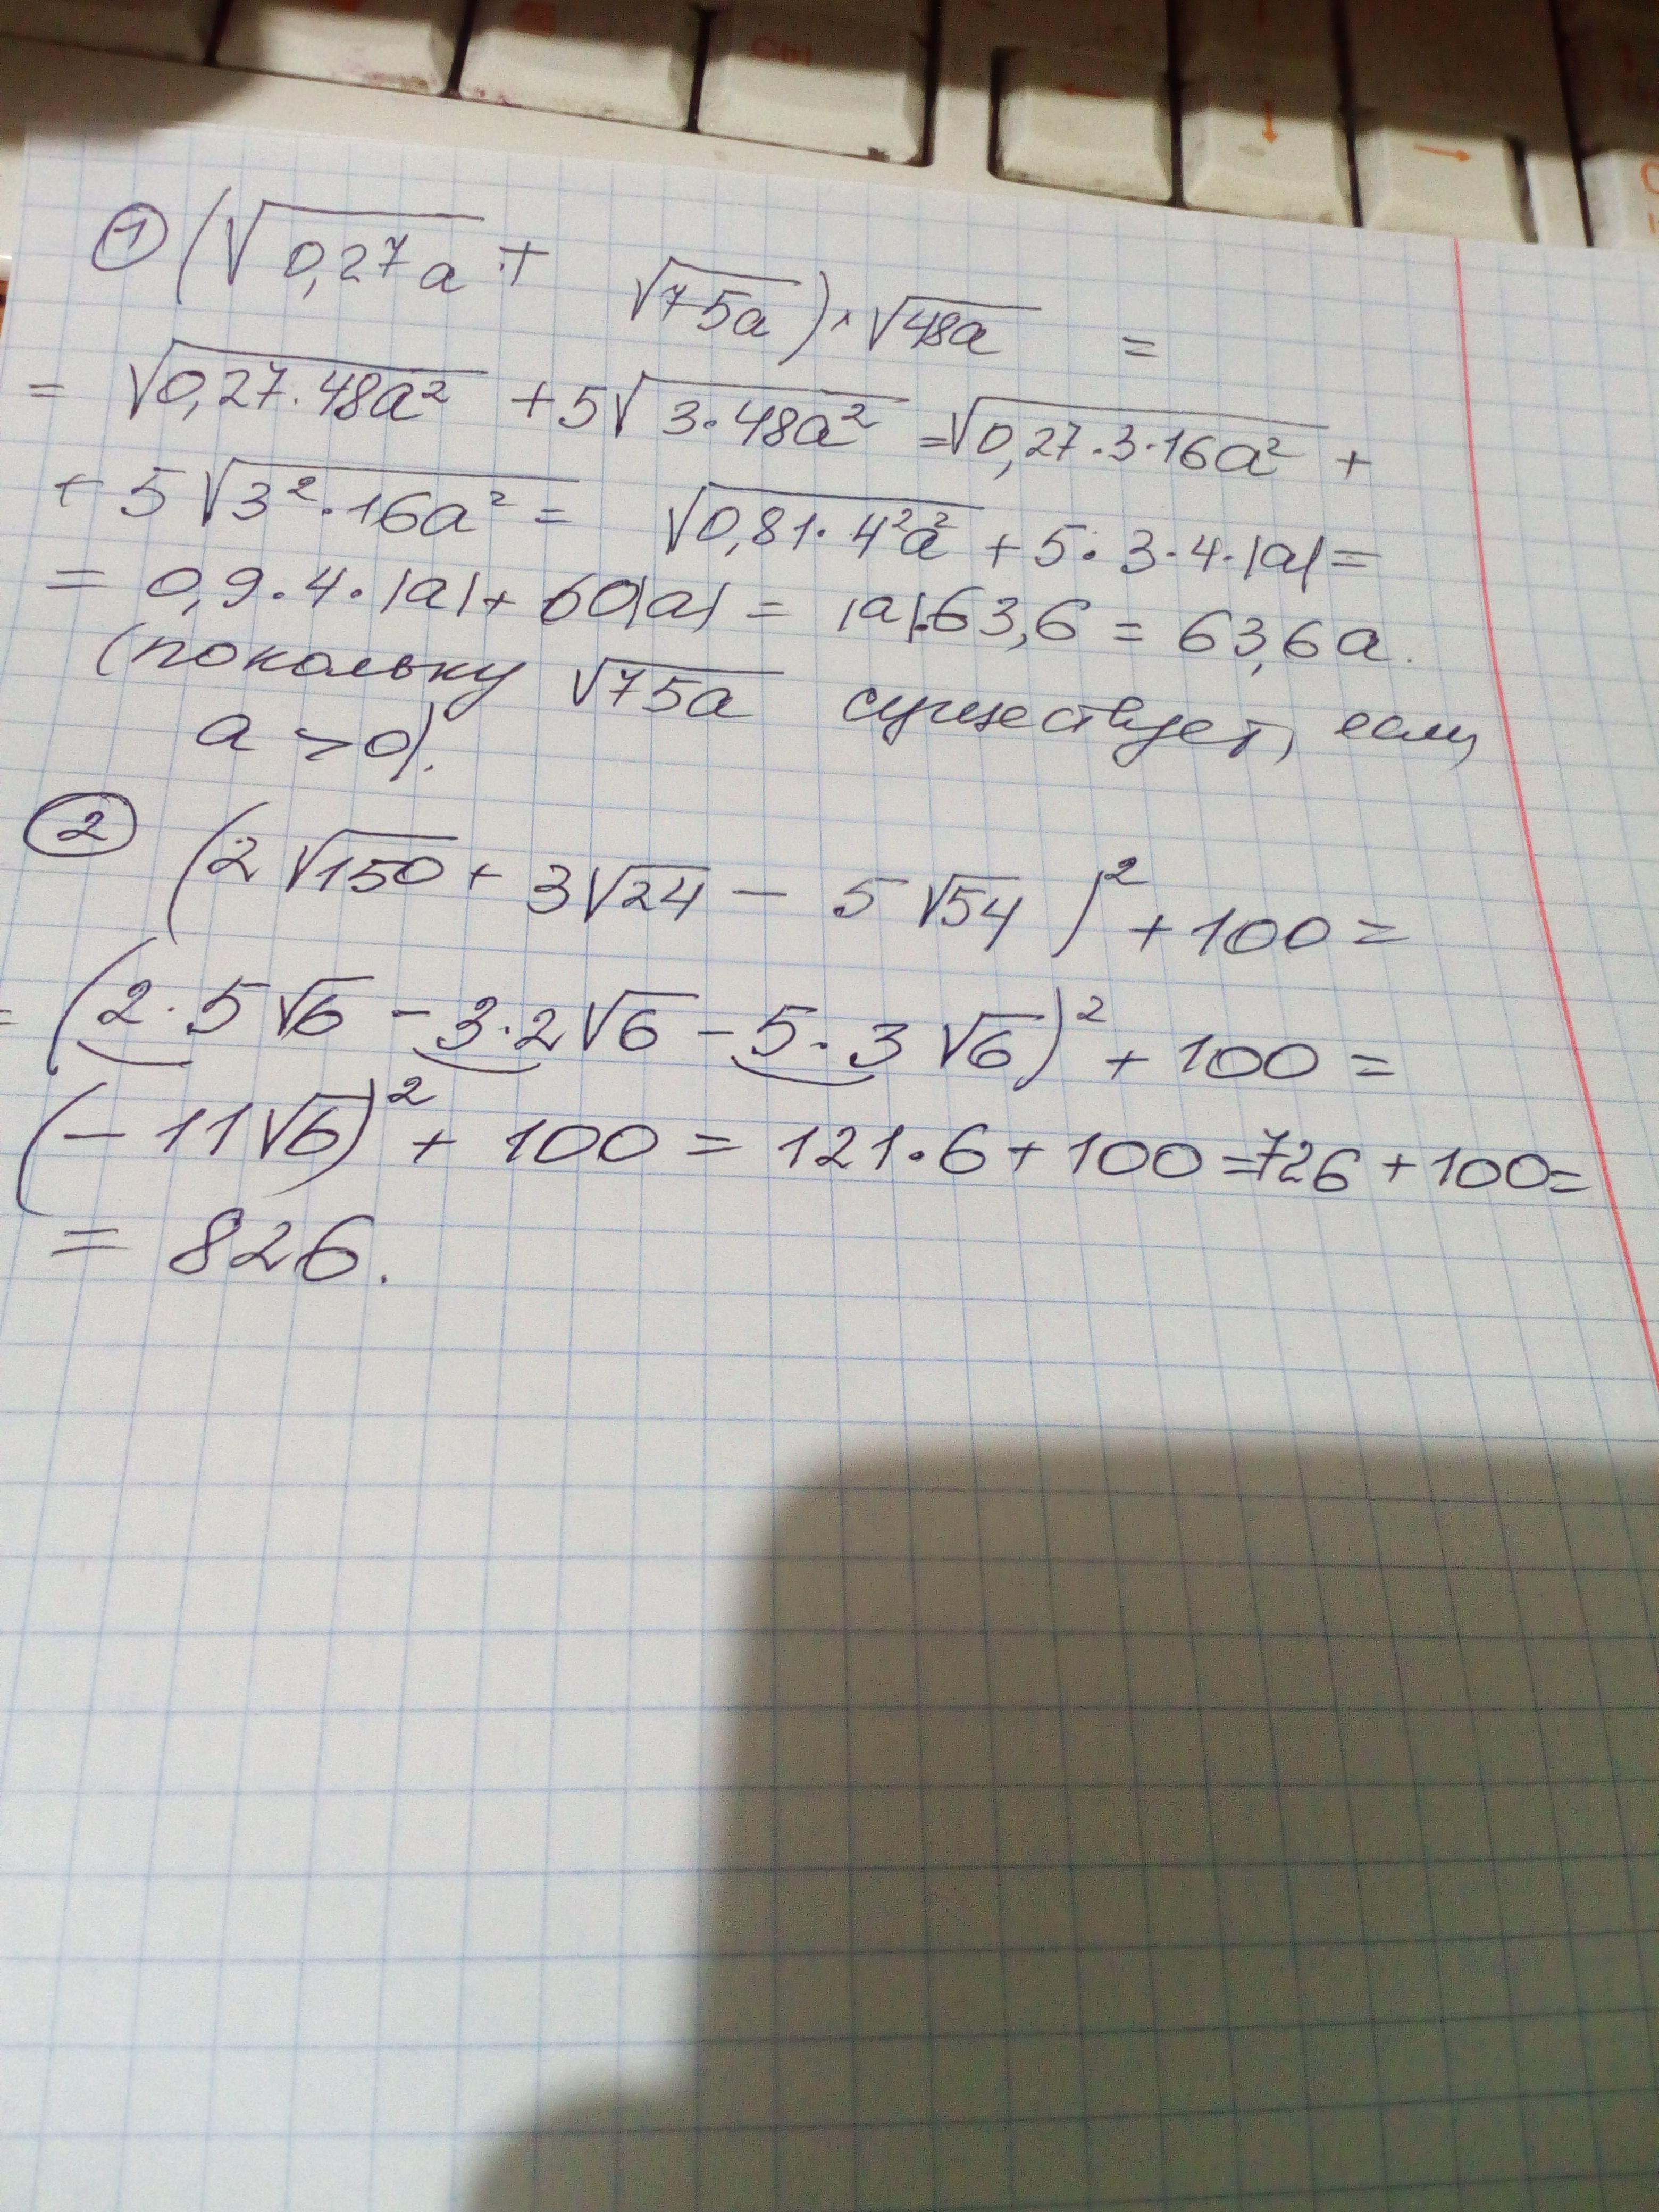 Ctrl
① (√0,27a + √75a) · √48a =
= √0,27·48a² + 5√3·48a² = √0,27·3·16a² +
+ 5√3²·16a² = √0,81·4²a² + 5·3·4·|a| =
= 0,9·4·|a| + 60|a| = |a|·63,6 = 63,6a.
(покольку √75a существует, если
a > 0).
② (2√150 + 3√24 − 5√54)² + 100 =
= (2·5√6 − 3·2√6 − 5·3√6)² + 100 =
(−11√6)² + 100 = 121·6 + 100 = 726 + 100 =
= 826.